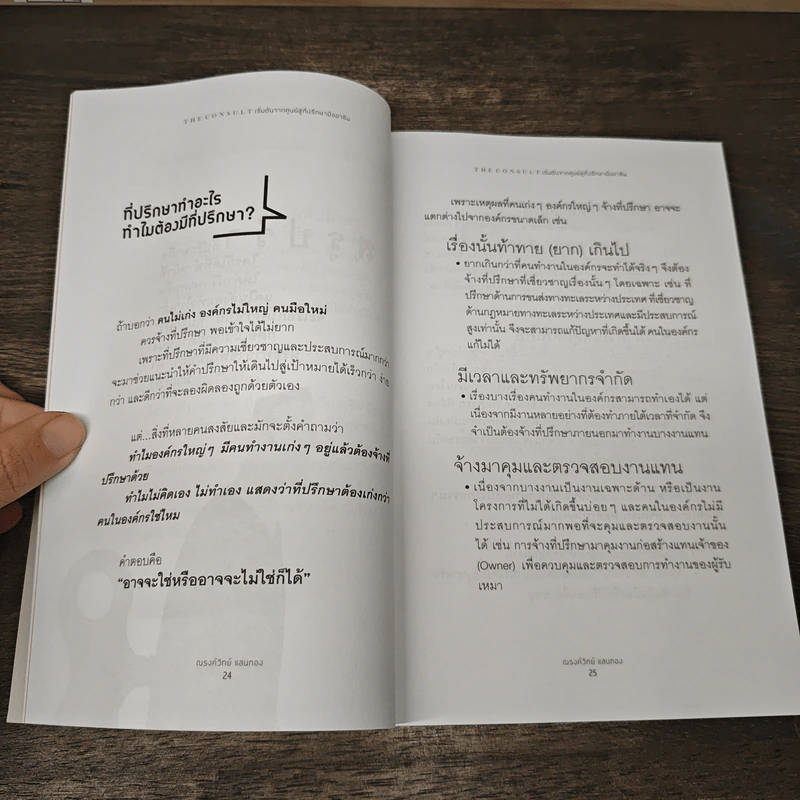 THE CONSULT เริ่มต้นจากศูนย์สู่ที่ปรึกษามืออาชีพ
ที่ปรึกษาทำอะไร
ทำไมต้องมีที่ปรึกษา?
ถ้าบอกว่า คนไม่เก่ง องค์กรไม่ใหญ่ คนมือใหม่
ควรจ้างที่ปรึกษา พอเข้าใจได้ไม่ยาก
เพราะที่ปรึกษาที่มีความเชี่ยวชาญและประสบการณ์มากกว่า
จะมาช่วยแนะนำให้คำปรึกษาให้เดินไปสู่เป้าหมายได้เร็วกว่า ง่าย
กว่า และดีกว่าที่จะลองผิดลองถูกด้วยตัวเอง
แต่...สิ่งที่หลายคนสงสัยและมักจะตั้งคำถามว่า
ทำไมองค์กรใหญ่ๆ มีคนทำงานเก่งๆ อยู่แล้วต้องจ้างที่
ปรึกษาด้วย
ทำไมไม่คิดเอง ไม่ทำเอง แสดงว่าที่ปรึกษาต้องเก่งกว่า
คนในองค์กรใช่ไหม
คำตอบคือ
“อาจจะใช่หรืออาจจะไม่ใช่ก็ได้”
ณรงค์วิทย์ แสนทอง
24
THE CONSULT เริ่มต้นจากศูนย์สู่ที่ปรึกษามืออาชีพ
เพราะเหตุผลที่คนเก่งๆ องค์กรใหญ่ๆ จ้างที่ปรึกษา อาจจะ
แตกต่างไปจากองค์กรขนาดเล็ก เช่น
เรื่องนั้นท้าทาย (ยาก) เกินไป
• ยากเกินกว่าที่คนทำงานในองค์กรจะทำได้จริงๆ จึงต้อง
จ้างที่ปรึกษาที่เชี่ยวชาญเรื่องนั้นๆ โดยเฉพาะ เช่น ที่
ปรึกษาด้านการขนส่งทางทะเลระหว่างประเทศ ที่เชี่ยวชาญ
ด้านกฎหมายทางทะเลระหว่างประเทศและมีประสบการณ์
สูงเท่านั้น จึงจะสามารถแก้ปัญหาที่เกิดขึ้นได้ คนในองค์กร
แก้ไม่ได้
มีเวลาและทรัพยากรจำกัด
• เรื่องบางเรื่องคนทำงานในองค์กรสามารถทำเองได้ แต่
เนื่องจากมีงานหลายอย่างที่ต้องทำภายใต้เวลาที่จำกัด จึง
จำเป็นต้องจ้างที่ปรึกษาภายนอกมาทำงานบางงานแทน
จ้างมาคุมและตรวจสอบงานแทน
• เนื่องจากบางงานเป็นงานเฉพาะด้าน หรือเป็นงาน
โครงการที่ไม่ได้เกิดขึ้นบ่อยๆ และคนในองค์กรไม่มี
ประสบการณ์มากพอที่จะคุมและตรวจสอบงานนั้น
ได้ เช่น การจ้างที่ปรึกษามาคุมงานก่อสร้างแทนเจ้าของ
(Owner) เพื่อควบคุมและตรวจสอบการทำงานของผู้รับ
เหมา
ณรงค์วิทย์ แสนทอง
25